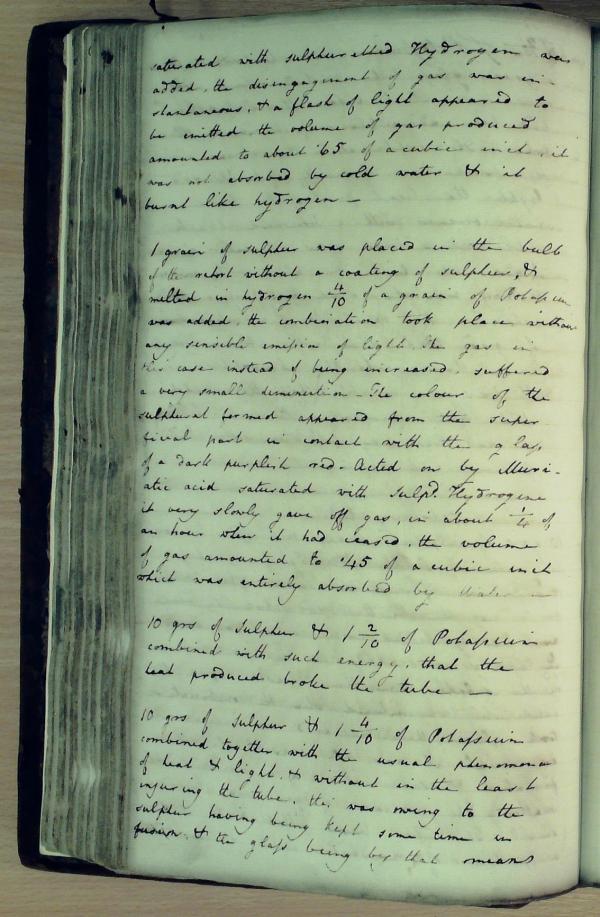 saturated with sulphuretted Hydrogen was
added, the disengagement of gas was in-
stantaneous, & a flash of light appeared to
be emitted the volume of gas produced
amounted to about .65 of a cubic inch, it
was not absorbed by cold water & it
burnt like hydrogen —
1 grain of sulphur was placed in the bulb
of the retort without a coating of sulphur, &
melted in hydrogen 4/10 of a grain of Potassium
was added, the combination took place without
any sensible emission of light. The gas in
this case instead of being increased, suffered
a very small diminution – The colour of the
sulphuret formed appeared from the super
ficial part in contact with the glass
of a dark purplish red. Acted on by Muri-
atic acid saturated with Sulpd. Hydrogene
it very slowly gave off gas, in about 1/4 of
an hour when it had ceased, the volume
of gas amounted to .45 of a cubic inch
which was entirely absorbed by Water —
10 grs of Sulphur & 1 2/10 of Potassium
combined with such energy, that the
heat produced broke the tube —
10 grs of Sulphur & 1 4/10 of Potassium
combined together with the usual phenomena
of heat & light, & without in the least
injuring the tube, this was owing to the
sulphur having being kept some time in
fusion & the glass being by that means